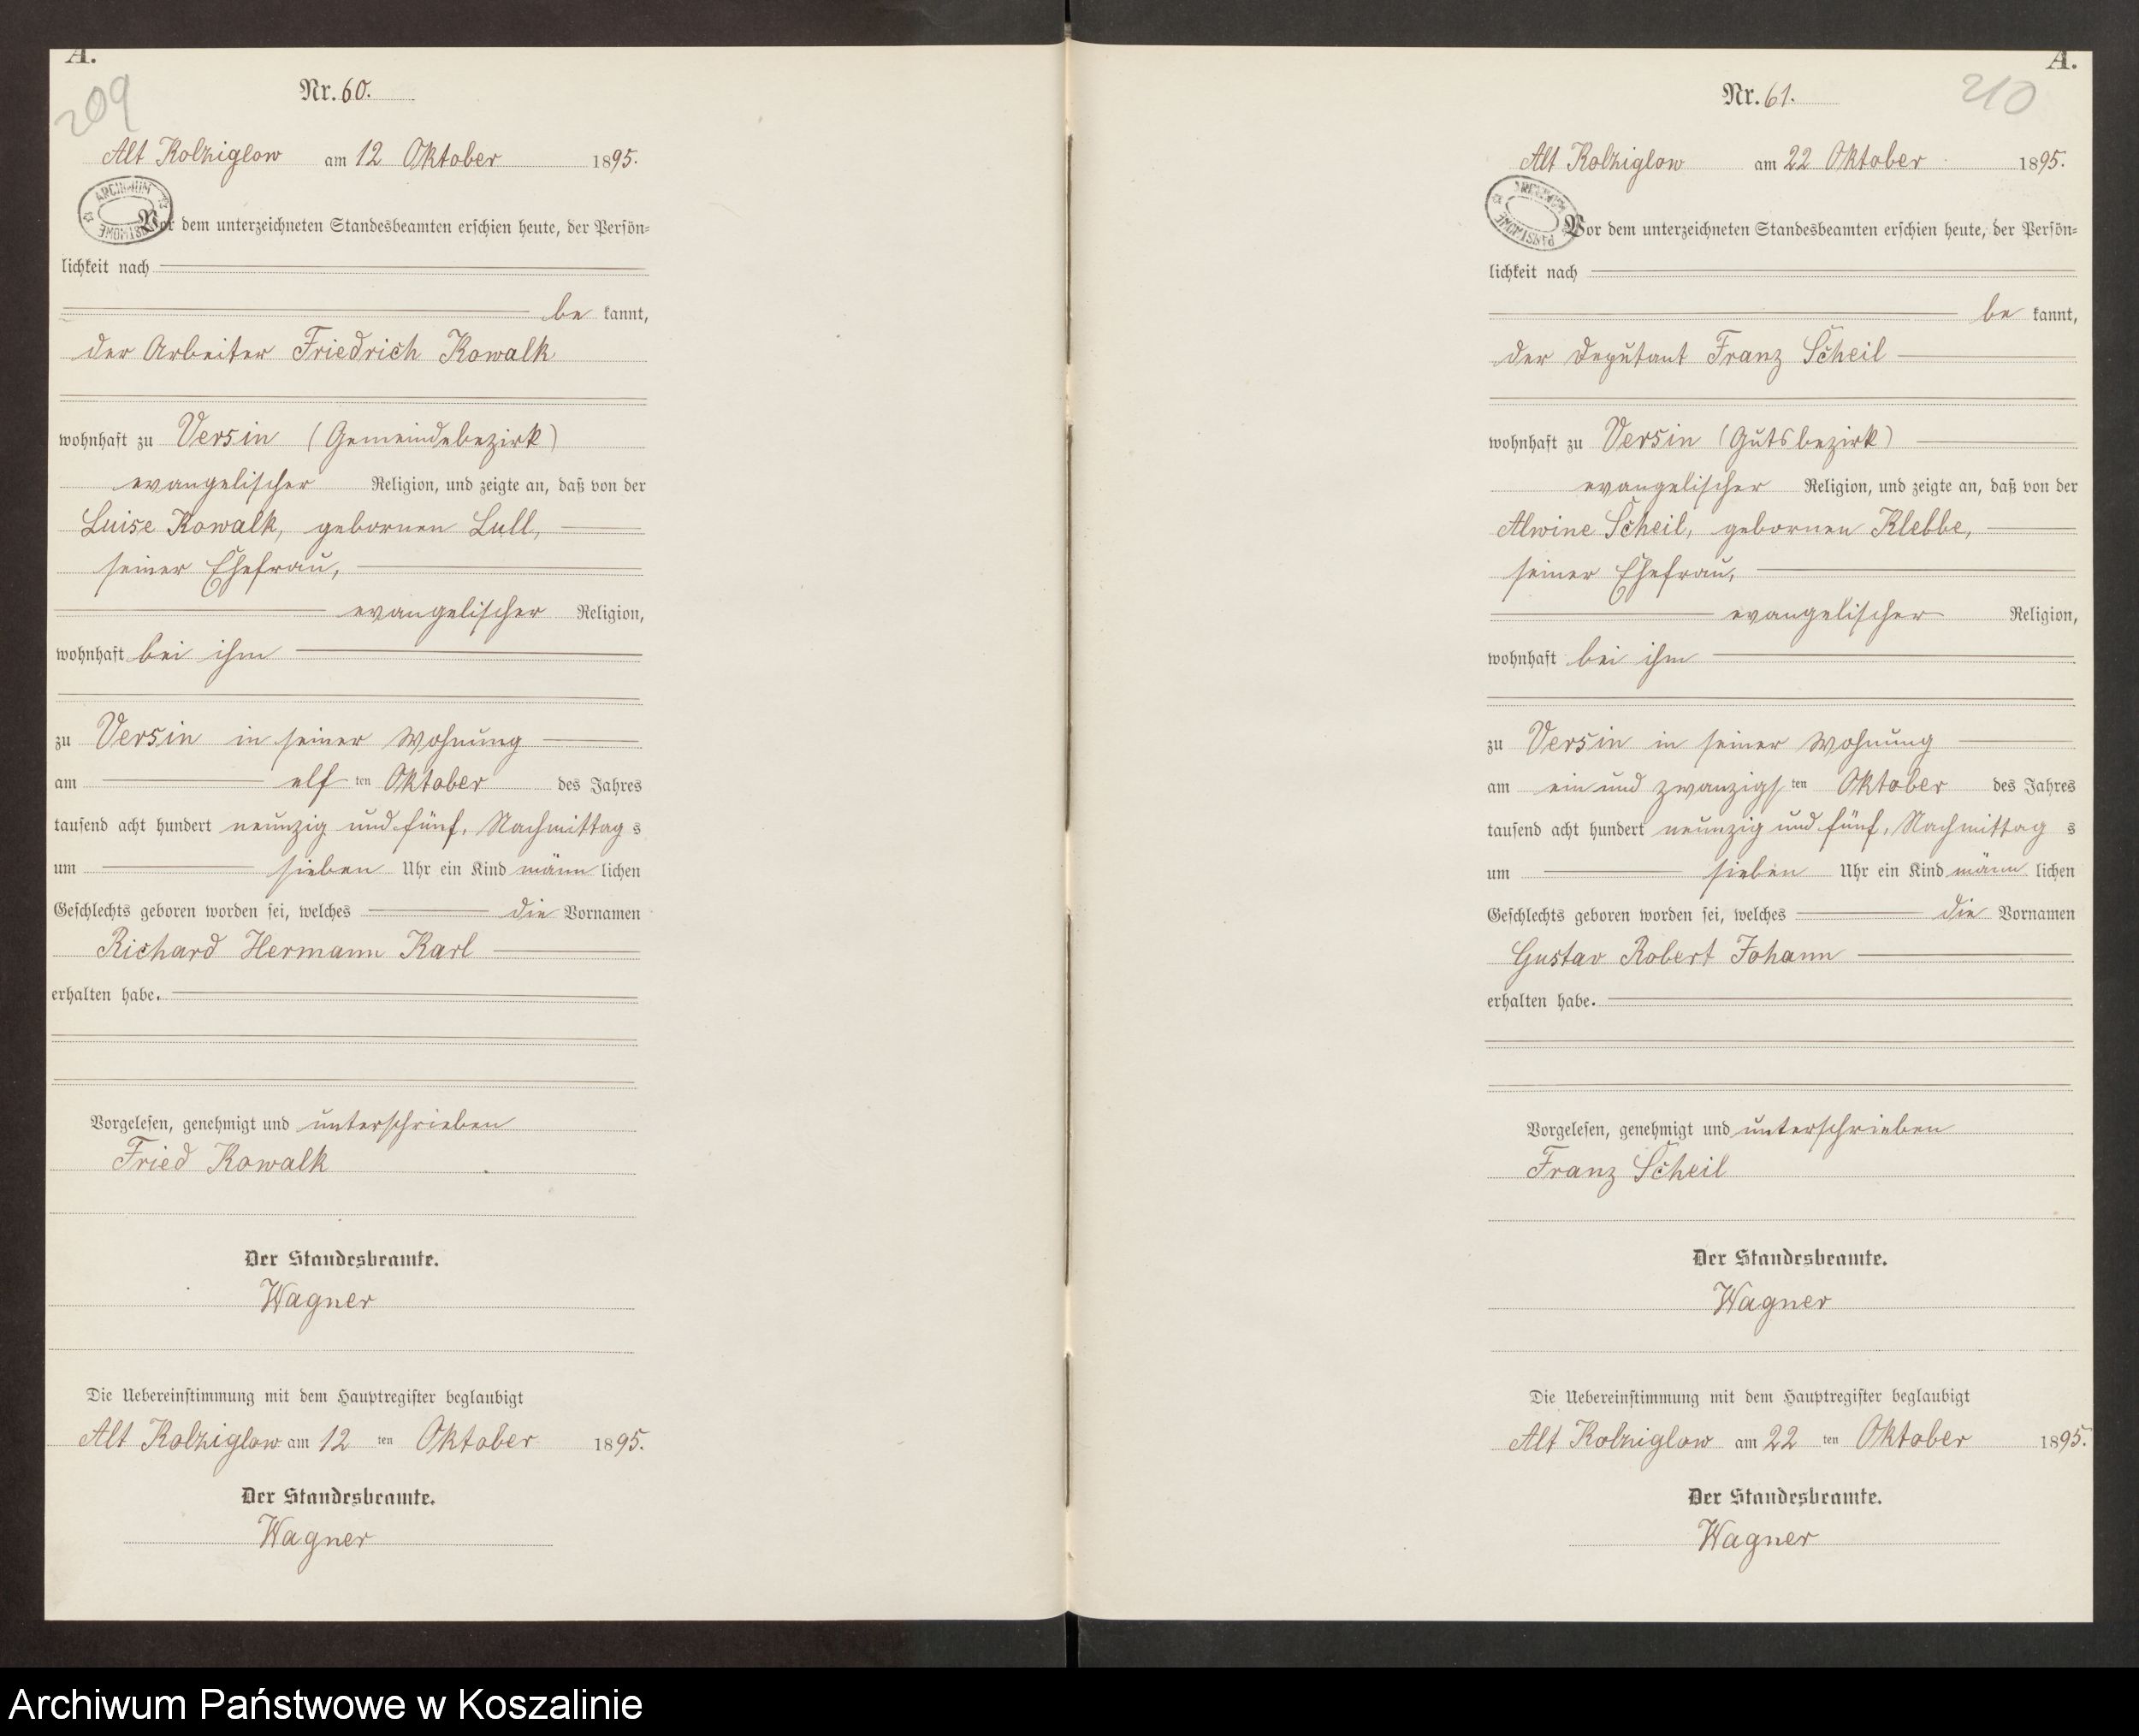 A.
209
Nr. 60.
Alt Kolziglow am 12 Oktober 1895.
ARCHIWUM PAŃSTWOWE
Vor dem unterzeichneten Standesbeamten erschien heute, der Persön-
lichkeit nach
be kannt,
der Arbeiter Friedrich Kowalk
wohnhaft zu Versin (Gemeindebezirk)
evangelischer Religion, und zeigte an, daß von der
Luise Kowalk, gebornen Lull,
seiner Ehefrau,
evangelischer Religion,
wohnhaft bei ihm
zu Versin in seiner Wohnung
am elf ten Oktober des Jahres
tausend acht hundert neunzig und fünf, Nachmittag s
um sieben Uhr ein Kind männ lichen
Geschlechts geboren worden sei, welches die Vornamen
Richard Hermann Karl
erhalten habe.
Vorgelesen, genehmigt und unterschrieben
Fried Kowalk
Der Standesbeamte.
Wagner
Die Uebereinstimmung mit dem Hauptregister beglaubigt
Alt Kolziglow am 12 ten Oktober 1895.
Der Standesbeamte.
Wagner
A.
210
Nr. 61.
Alt Kolziglow am 22 Oktober 1895.
ARCHIWUM PAŃSTWOWE
Vor dem unterzeichneten Standesbeamten erschien heute, der Persön-
lichkeit nach
be kannt,
der Deputant Franz Scheil
wohnhaft zu Versin (Gutsbezirk)
evangelischer Religion, und zeigte an, daß von der
Alwine Scheil, gebornen Klebbe,
seiner Ehefrau,
evangelischer Religion,
wohnhaft bei ihm
zu Versin in seiner Wohnung
am ein und zwanzigs ten Oktober des Jahres
tausend acht hundert neunzig und fünf, Nachmittag s
um sieben Uhr ein Kind männ lichen
Geschlechts geboren worden sei, welches die Vornamen
Gustav Robert Johann
erhalten habe.
Vorgelesen, genehmigt und unterschrieben
Franz Scheil
Der Standesbeamte.
Wagner
Die Uebereinstimmung mit dem Hauptregister beglaubigt
Alt Kolziglow am 22 ten Oktober 1895.
Der Standesbeamte.
Wagner
Archiwum Państwowe w Koszalinie